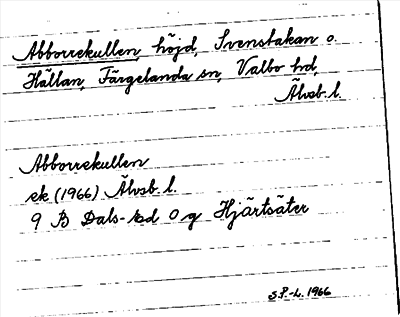 Abborrekullen höjd, Svenstakan o.
Hällan, Färgelanda sn, Valbo hd,
Älvsb. l.
Abborrekullen
ek (1966) Älvsb. l.
9 B Dals-Ed 0 g Hjärtsäter
S.P.-L. 1966